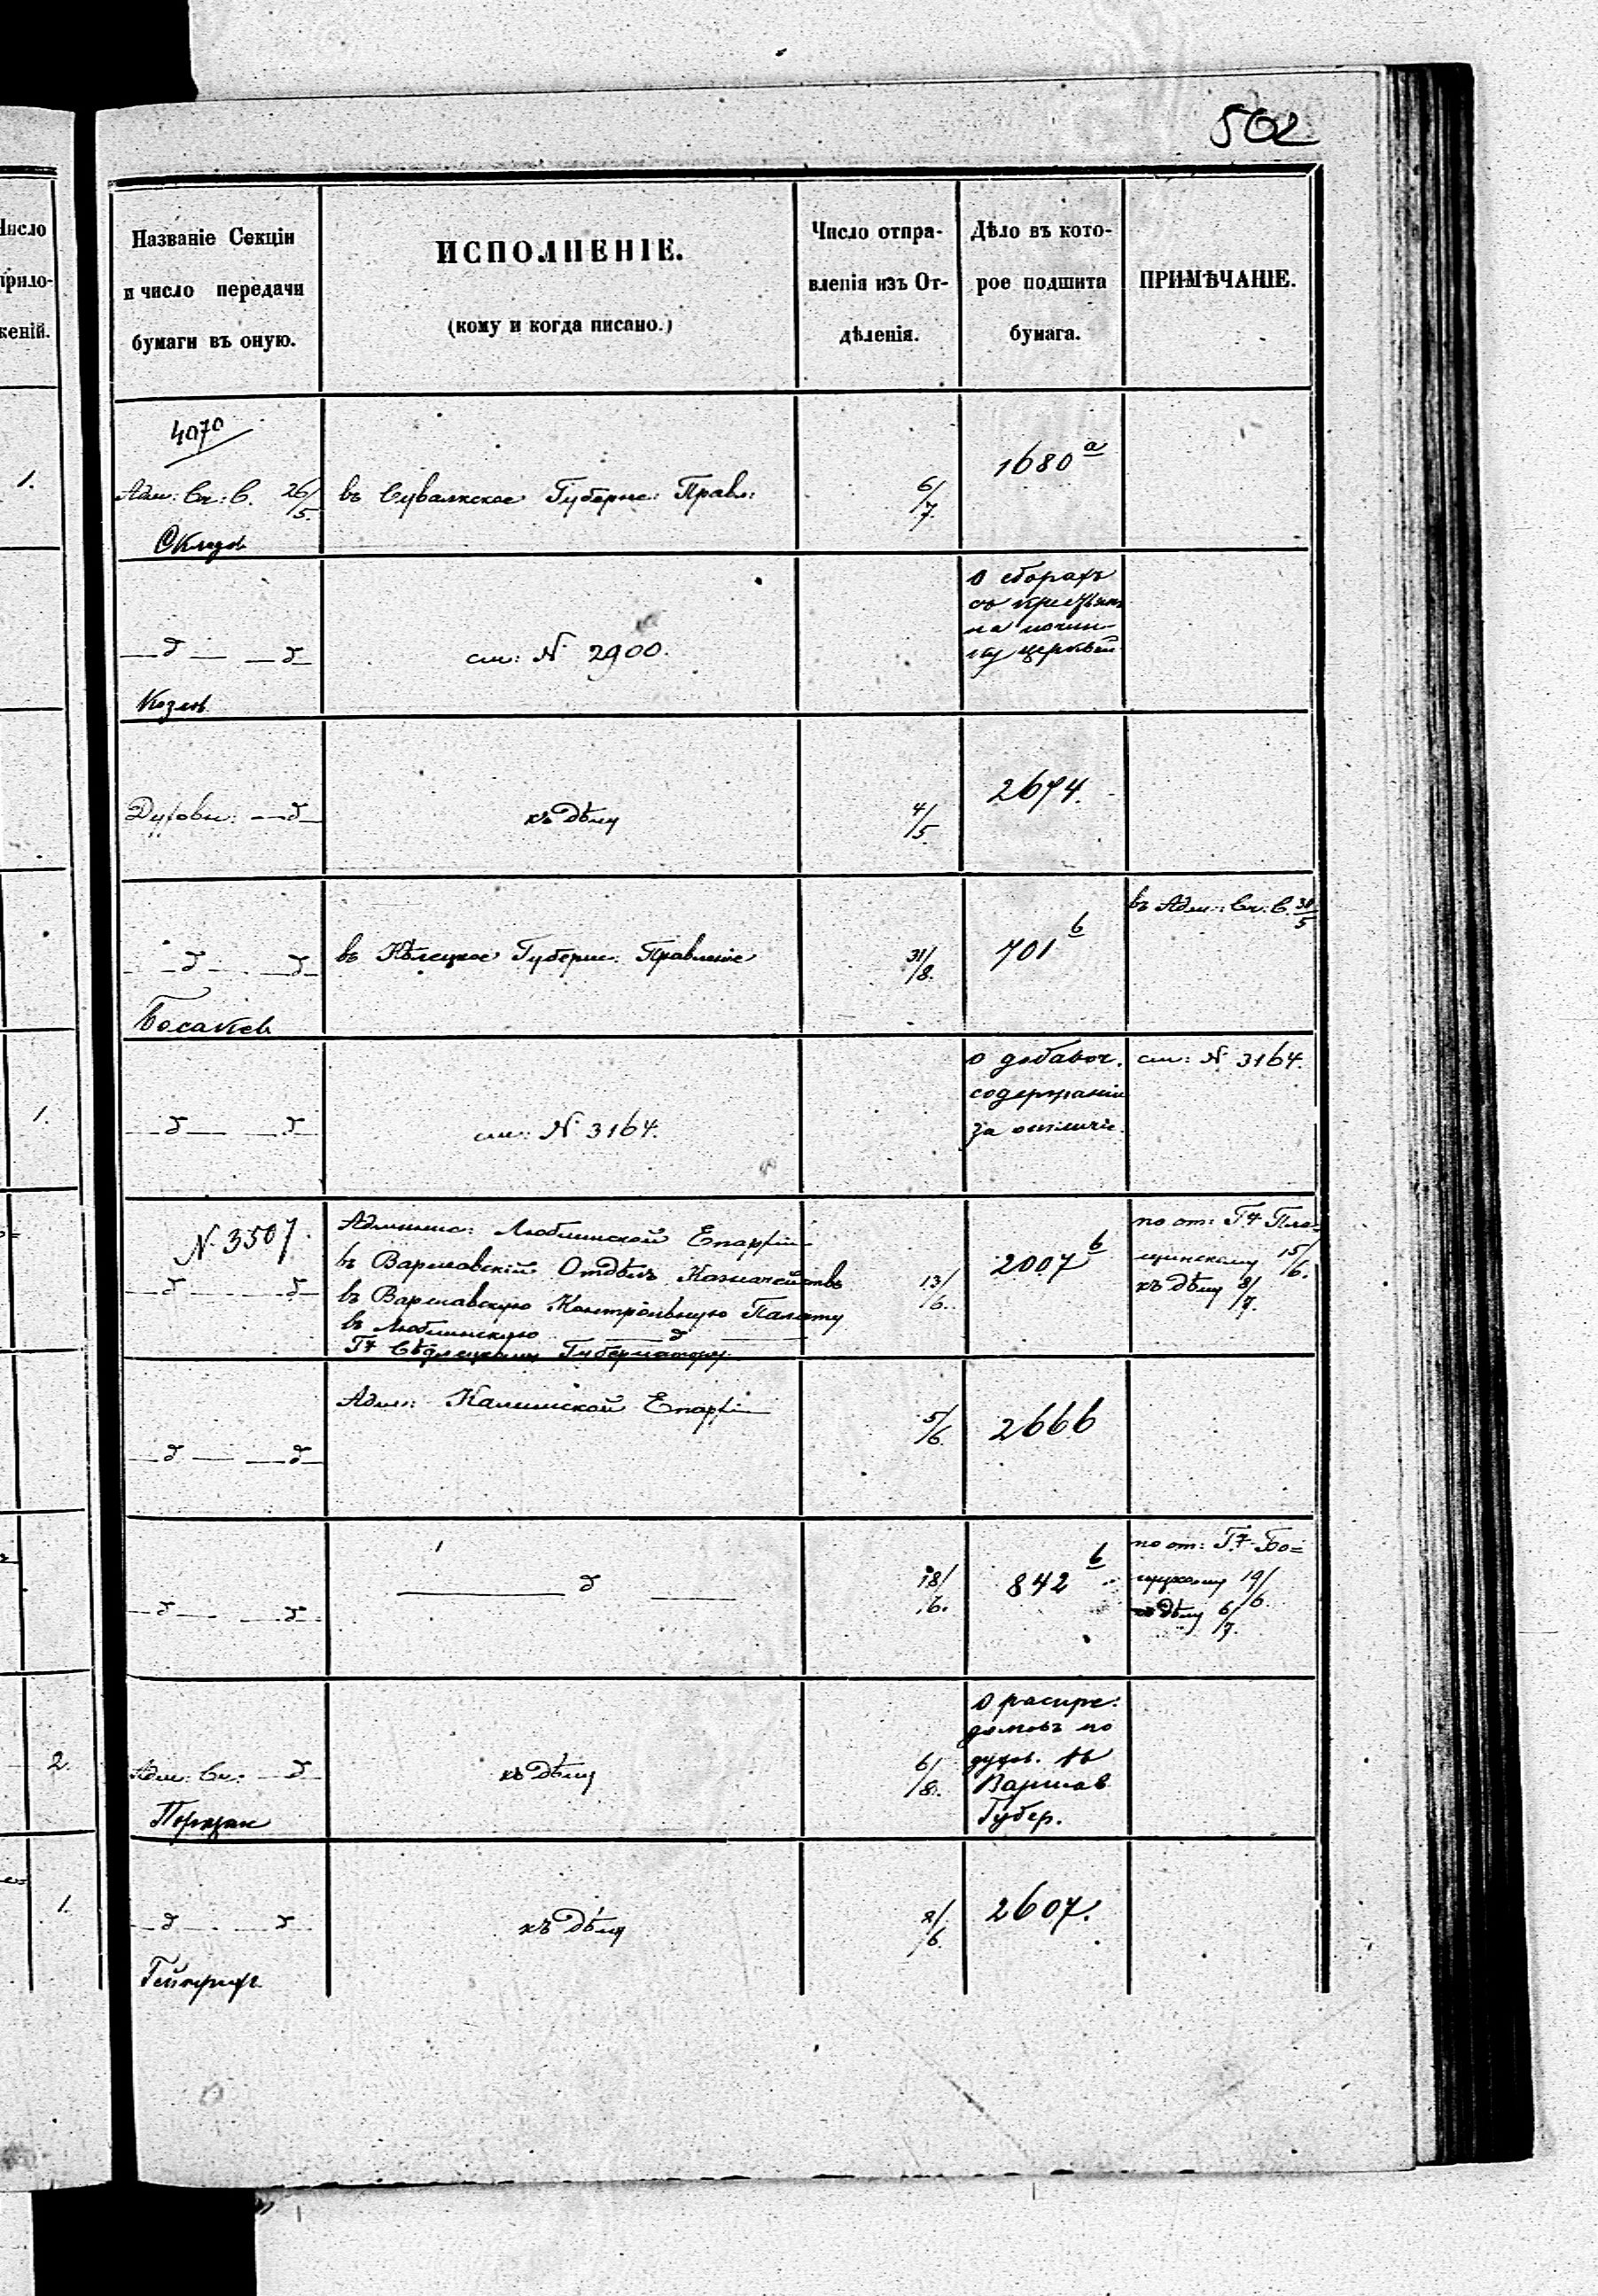 502
Число
прило-
женій.
Названіе Секціи
и число передачи
бумаги въ оную.
ИСПОЛНЕНІЕ.
(кому и когда писано.)
Число отпра-
вленія изъ От-
дѣленія.
Дѣло въ кото-
рое подшита
бумага.
ПРИМѢЧАНІЕ.
1.
4070
Адм: Ск: С. 26/5.
въ Сувалкское Губерн: Правл:
6/7.
1680 а
— д — — д —
Козлов
см: № 2900.
о сборахъ
со крестьян
на почин-
ку церквей
Духовн: — д —
къ дѣлу
4/5
2674.
— д — — д —
въ Кѣлецкое Губерн: Правленіе
31/8.
701 b
въ Адм: Ск: С. 30/5
1.
— д — — д —
см: № 3164.
о добавоч.
содержаніи
за отличіе.
см: № 3164.
№ 3507.
— д — — д —
Админис: Люблинской Епархіи
въ Варшавскій Отдѣлъ Казначействъ
въ Варшавскую Контрольную Палату
въ Люблинскую — д —
Гч Сѣдлецкому Губернатору
13/6.
2007 b
по от: Гч Пло-
щинскому 15/6.
къ дѣлу 8/7.
— д — — д —
Адм: Калишской Епархіи
5/6.
2666
— д — — д —
— д —
18/6.
842 b
по от: Гч Бо=
19/6.
къ дѣлу 6/7.
2.
Адм: Ск: — д —
къ дѣлу
6/8.
о распре:
домовъ по
духов. въ
Варшав
Губер.
1.
— д — — д —
Гейнрихъ
къ дѣлу
8/6.
2607.